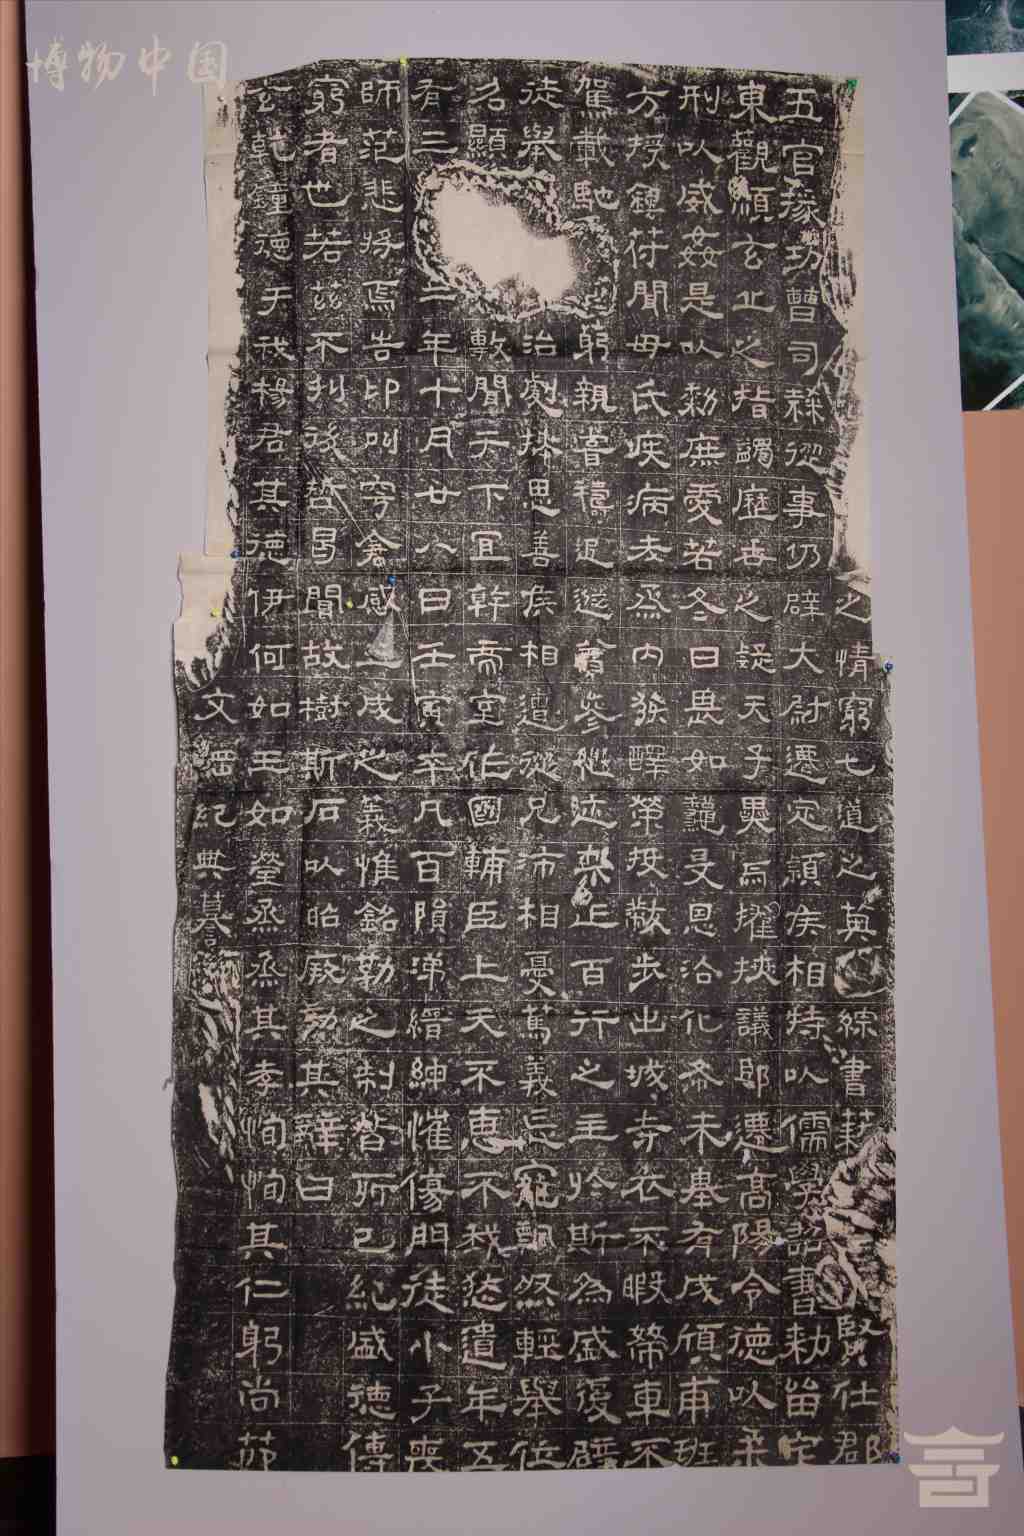 之情窮七道之英綜書賢仕郡
五官掾功曹司隸從事仍辟大尉遷定潁侯相特以儒學詔書勑留定
東觀順玄丘之指蠲歷世之疑天子異焉擢拜議郎遷高陽令德以柔
刑以威姦是以勑庶愛若冬日畏如秋旻恩洽化布未朞有成頃甫班
方授銀符聞母氏疾病去烝內發醳榮投黻步出城寺衣不暇帶車不
駕載馳躬親嘗禱退蹤曾參繼迹樂正百行之主於斯為盛復辟
徒舉治劇拜思善侯相遭從兄沛相憂篤義忘寵飄然輕舉位
名顯敷聞于下宜幹帝室作國輔臣上天不惠不我慭遺年五
有三二年十月廿八日壬寅卒凡百隕涕縉紳惟傷門徒小子喪
師范悲將焉告卬叫穹倉感三成之義惟銘勒之制皆所已紀盛德傳
窮者也若茲不刊後哲曷聞故樹斯石以昭厥勳其辤曰
玄乾鐘德于我楊君其德伊何如玉如瑩烝烝其孝恂恂其仁躬尚節
文紀典謩
博物中国